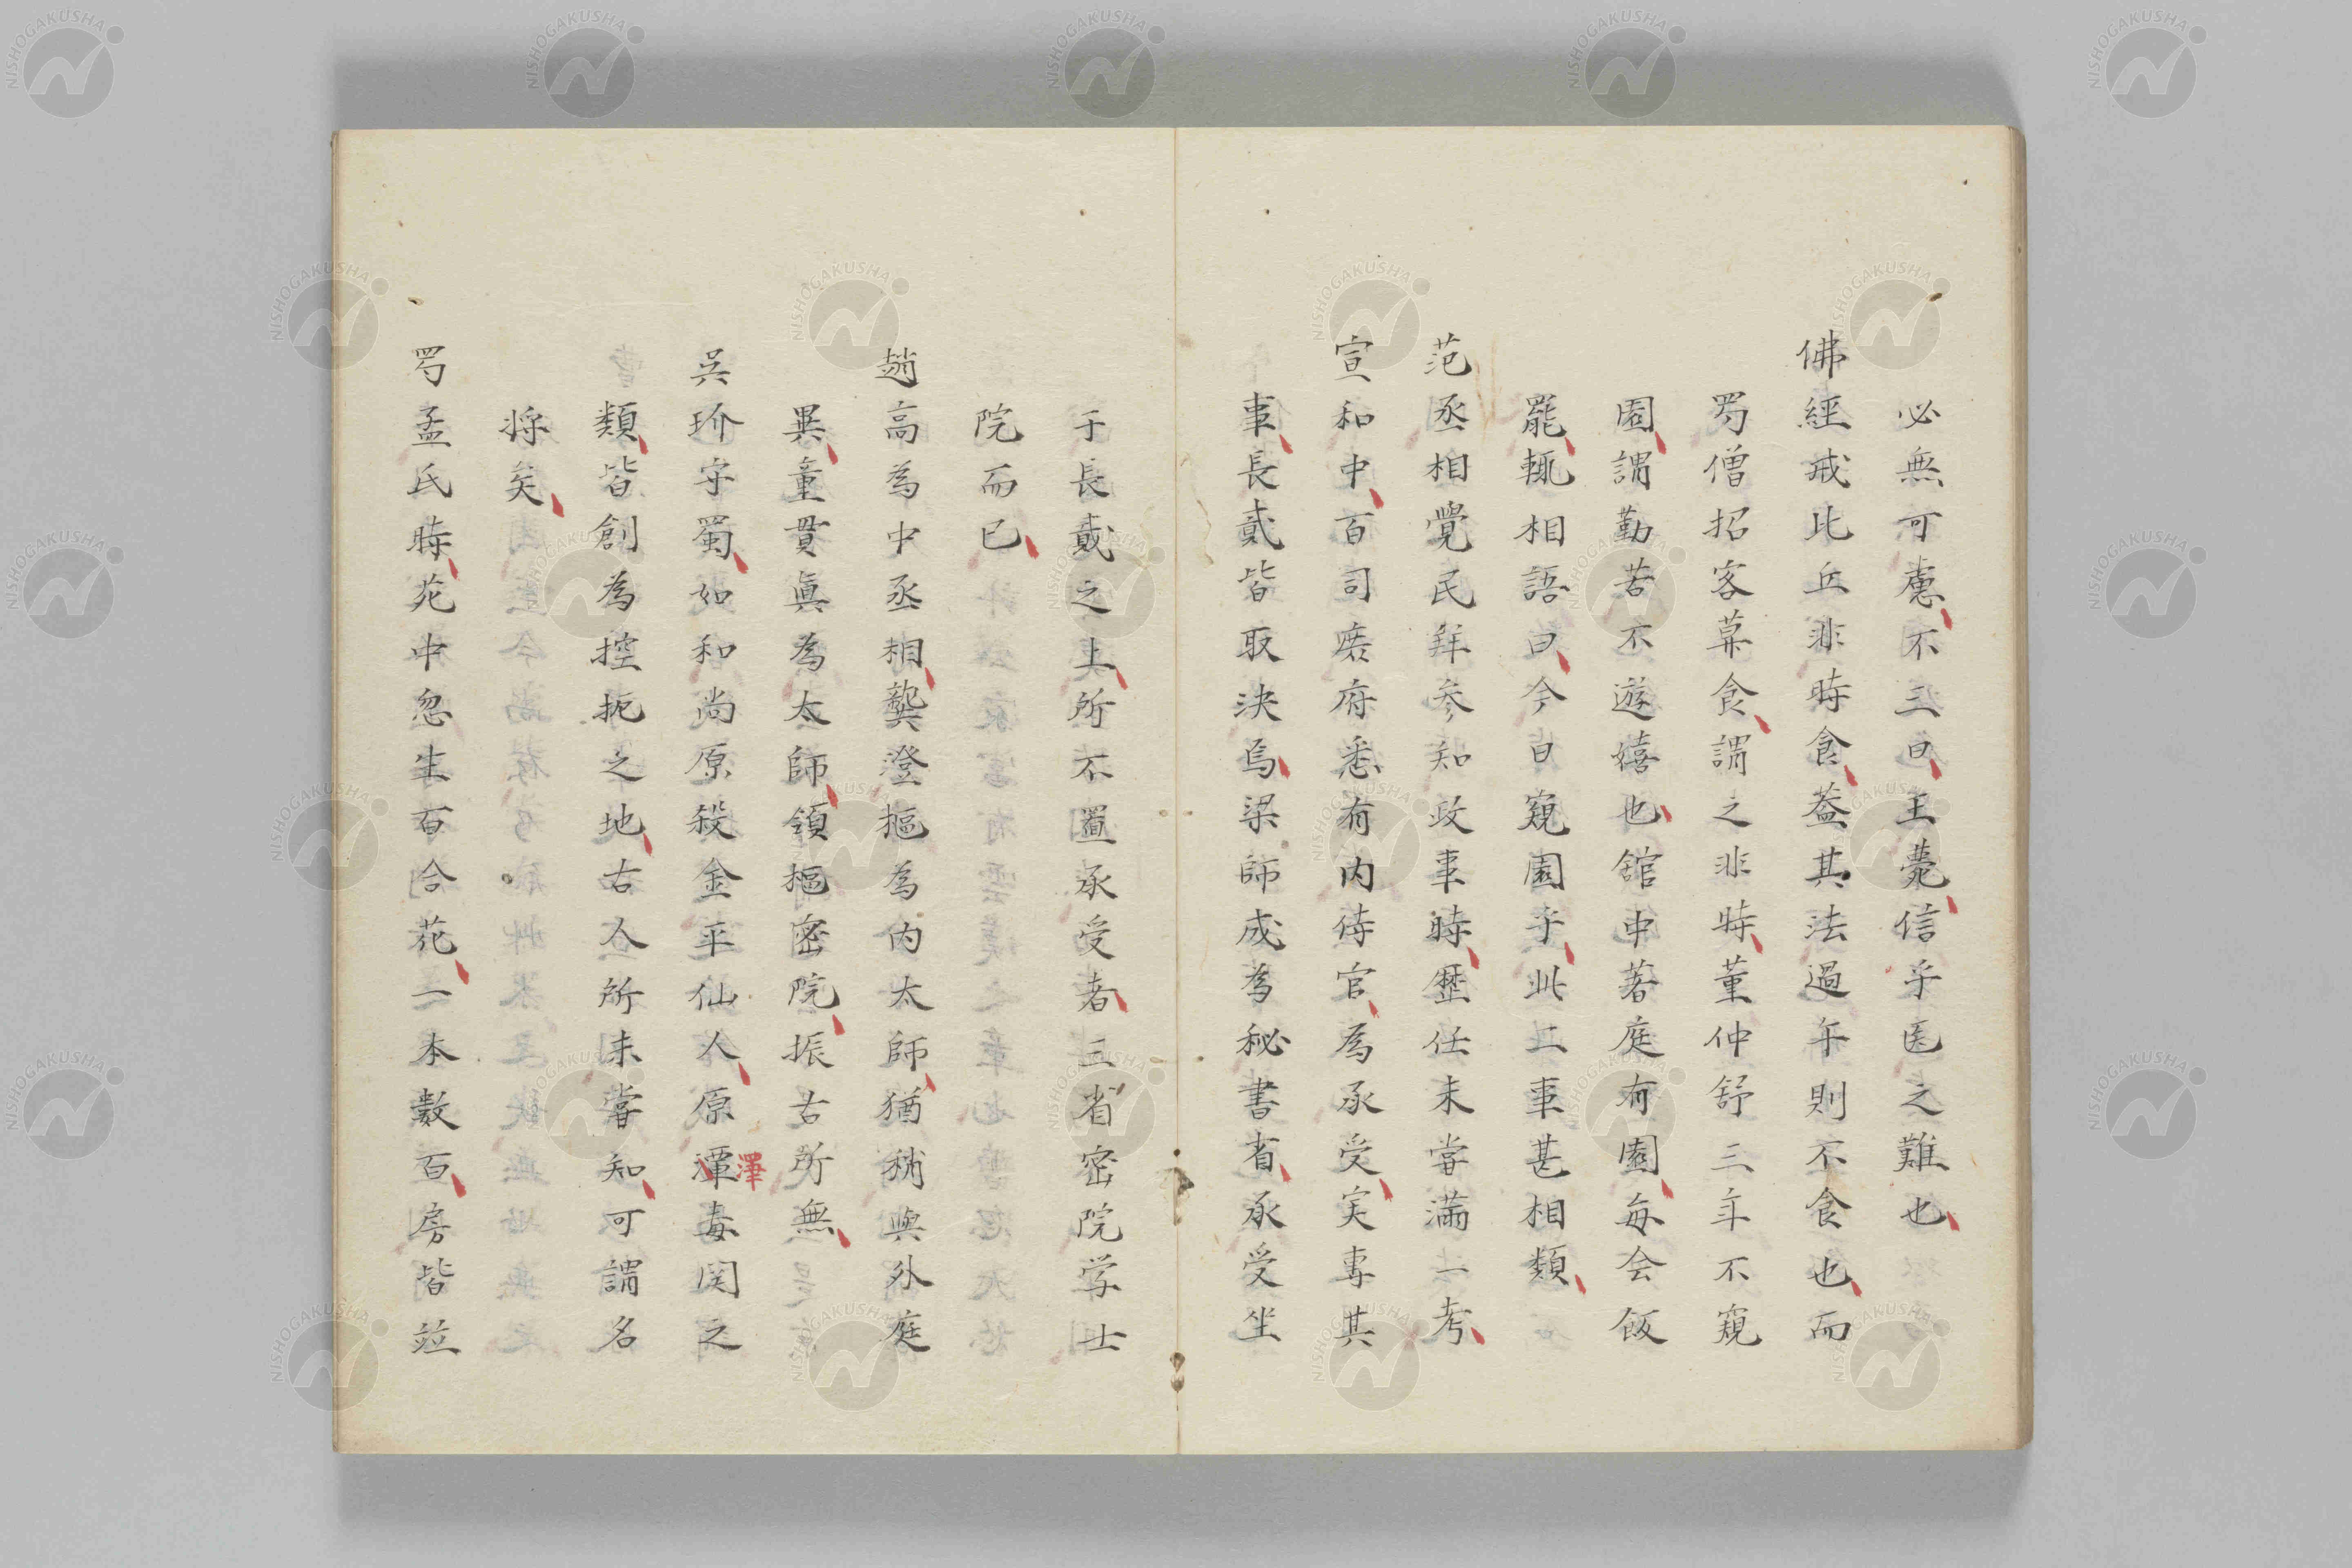 必無可慮不三日王薨信乎医之難也
佛經戒比丘非時食葢其法過午則不食也而
蜀僧招客莫食謂之非時董仲舒三年不窺
園謂勤苦不遊嬉也舘中著庭有園每会飯
罷輒相語曰今日窺園乎此二事甚相類
范丞相覺民拜参知政事時歴任未甞滿一考
宣和中百司庶府悉有内侍官為承受実專其
事長貳皆取決焉梁師成為秘書省承受坐
于長貳之上所不置承受者三省密院学士
院而已
趙高為中丞相龔澄樞為内太師猶稍與外庭
異童貫眞為太師領樞密院振古所無
吳玠守蜀如和尚原殺金平仙人原潭毒関之
澤
類皆創為控扼之地古人所未甞知可謂名
将矣
蜀孟氏時苑中忽生百合花一本數百房皆竝
NISHOGAKUSHA